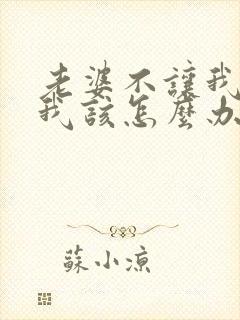 老婆不讓我
我該怎麼办
蘇小凉